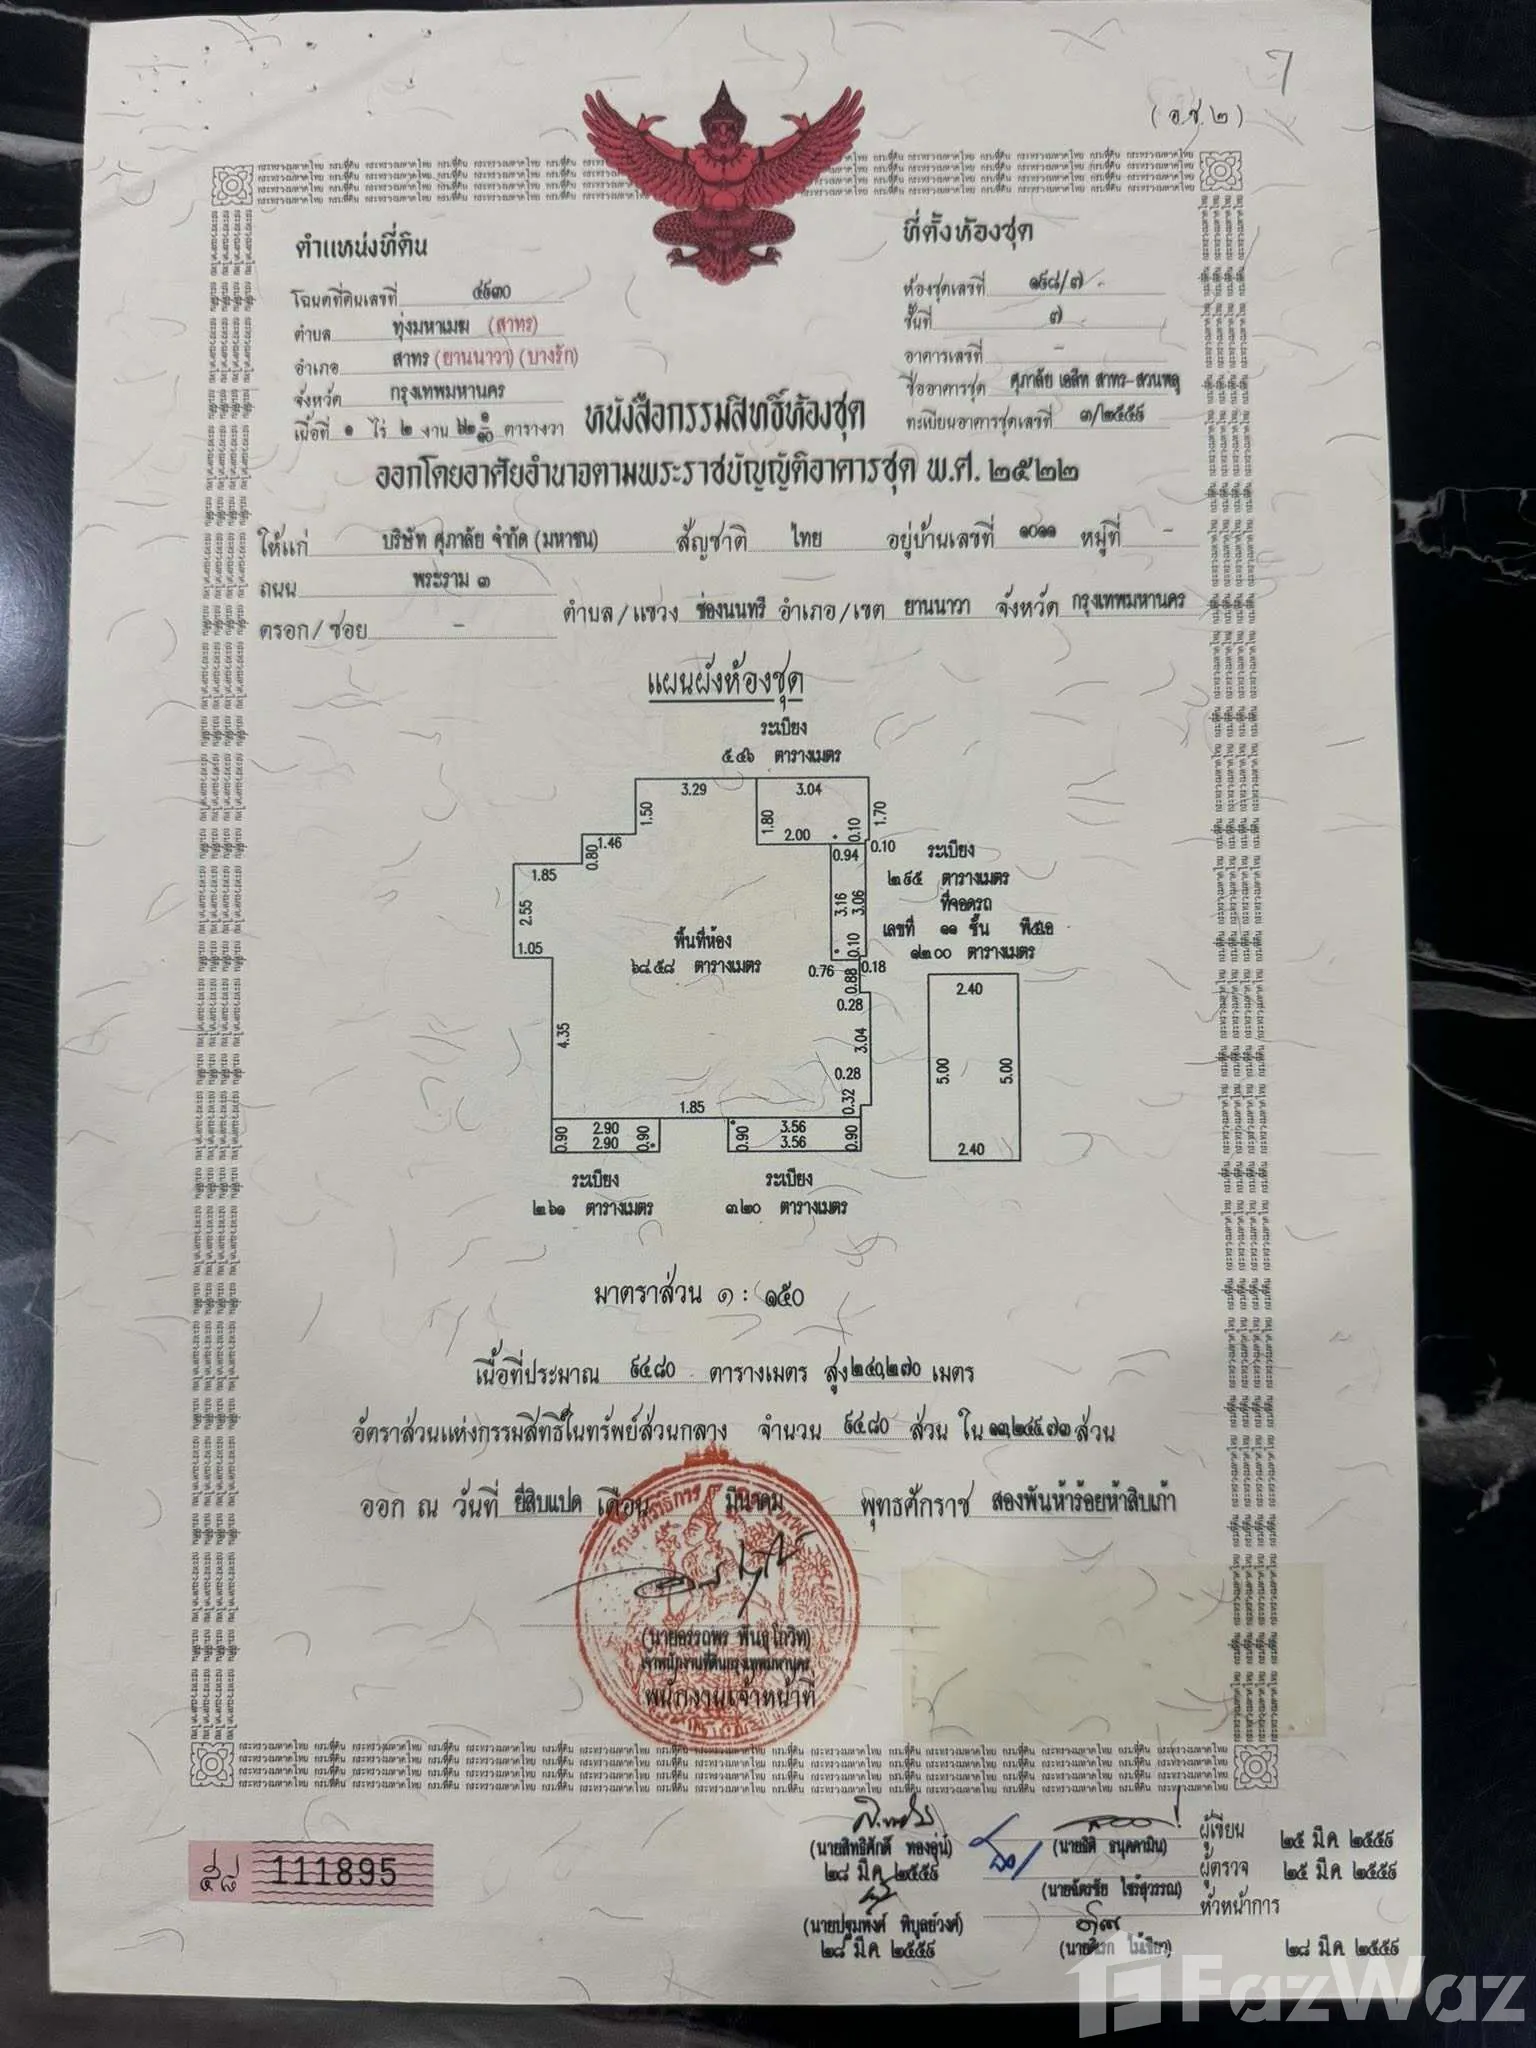 ๗
(อ.ช.๒)
ตำแหน่งที่ดิน
โฉนดที่ดินเลขที่ ๔๙๓๐
ตำบล ทุ่งมหาเมฆ (สาทร)
อำเภอ สาทร (ยานนาวา) (บางรัก)
จังหวัด กรุงเทพมหานคร
ที่ตั้งห้องชุด
ห้องชุดเลขที่ ๑๙๘/๗ -
ชั้นที่ ๗
อาคารเลขที่ -
ชื่ออาคารชุด ศุภาลัย เอลีท สาทร-สวนพลู
ทะเบียนอาคารชุดเลขที่ ๓/๒๕๕๙
เนื้อที่ ๑ ไร่ ๒ งาน ตารางวา
หนังสือกรรมสิทธิ์ห้องชุด
ออกโดยอาศัยอำนาจตามพระราชบัญญัติอาคารชุด พ.ศ. ๒๕๒๒
ให้แก่ บริษัท ศุภาลัย จำกัด (มหาชน) สัญชาติ ไทย อยู่บ้านเลขที่ ๑๐๑๑ หมู่ที่ -
ถนน พระราม ๓
ตรอก/ซอย - ตำบล/แขวง ช่องนนทรี อำเภอ/เขต ยานนาวา จังหวัด กรุงเทพมหานคร
แผนผังห้องชุด
ระเบียง
๕.๔๖ ตารางเมตร
3.29 3.04
1.50 1.80 0.10 1.70
1.46 2.00
0.80 0.94 0.10
1.85
2.55 3.16 3.06
1.05 0.10
0.76 0.88 0.18
0.28
4.35 3.04
0.28
1.85 0.32
พื้นที่ห้อง
๖๘.๕๘ ตารางเมตร
ระเบียง
๒.๙๕ ตารางเมตร
ที่จอดรถ
เลขที่ ๑๑ ชั้น
๑๒.๐๐ ตารางเมตร
2.40
5.00 5.00
2.40
0.90 2.90 0.90 0.90 3.56 0.90
2.90 3.56
ระเบียง ระเบียง
๒.๖๑ ตารางเมตร ๓.๒๐ ตารางเมตร
มาตราส่วน ๑ : ๑๕๐
เนื้อที่ประมาณ ๙๔.๘๐ ตารางเมตร สูง ๒.๔๐,๒.๗๐ เมตร
อัตราส่วนแห่งกรรมสิทธิ์ในทรัพย์ส่วนกลาง จำนวน ๙๔.๘๐ ส่วน ใน ๑๓,๒๔๙.๗๓ ส่วน
ออก ณ วันที่ ยี่สิบแปด เดือน มีนาคม พุทธศักราช สองพันห้าร้อยห้าสิบเก้า
(นายอรรถพร พันธุโกวิท)
เจ้าพนักงานที่ดินกรุงเทพมหานคร
พนักงานเจ้าหน้าที่
111895
(นายสิทธิศักดิ์ ทองอุ่น)
๒๘ มีค ๒๕๕๙
ผู้เขียน ๒๕ มีค ๒๕๕๙
ผู้ตรวจ ๒๕ มีค ๒๕๕๙
(นายฉัตรชัย ไชรสุวรรณ)
หัวหน้าการ
๒๘ มีค ๒๕๕๙
๒๘ มีค ๒๕๕๙
FazWaz